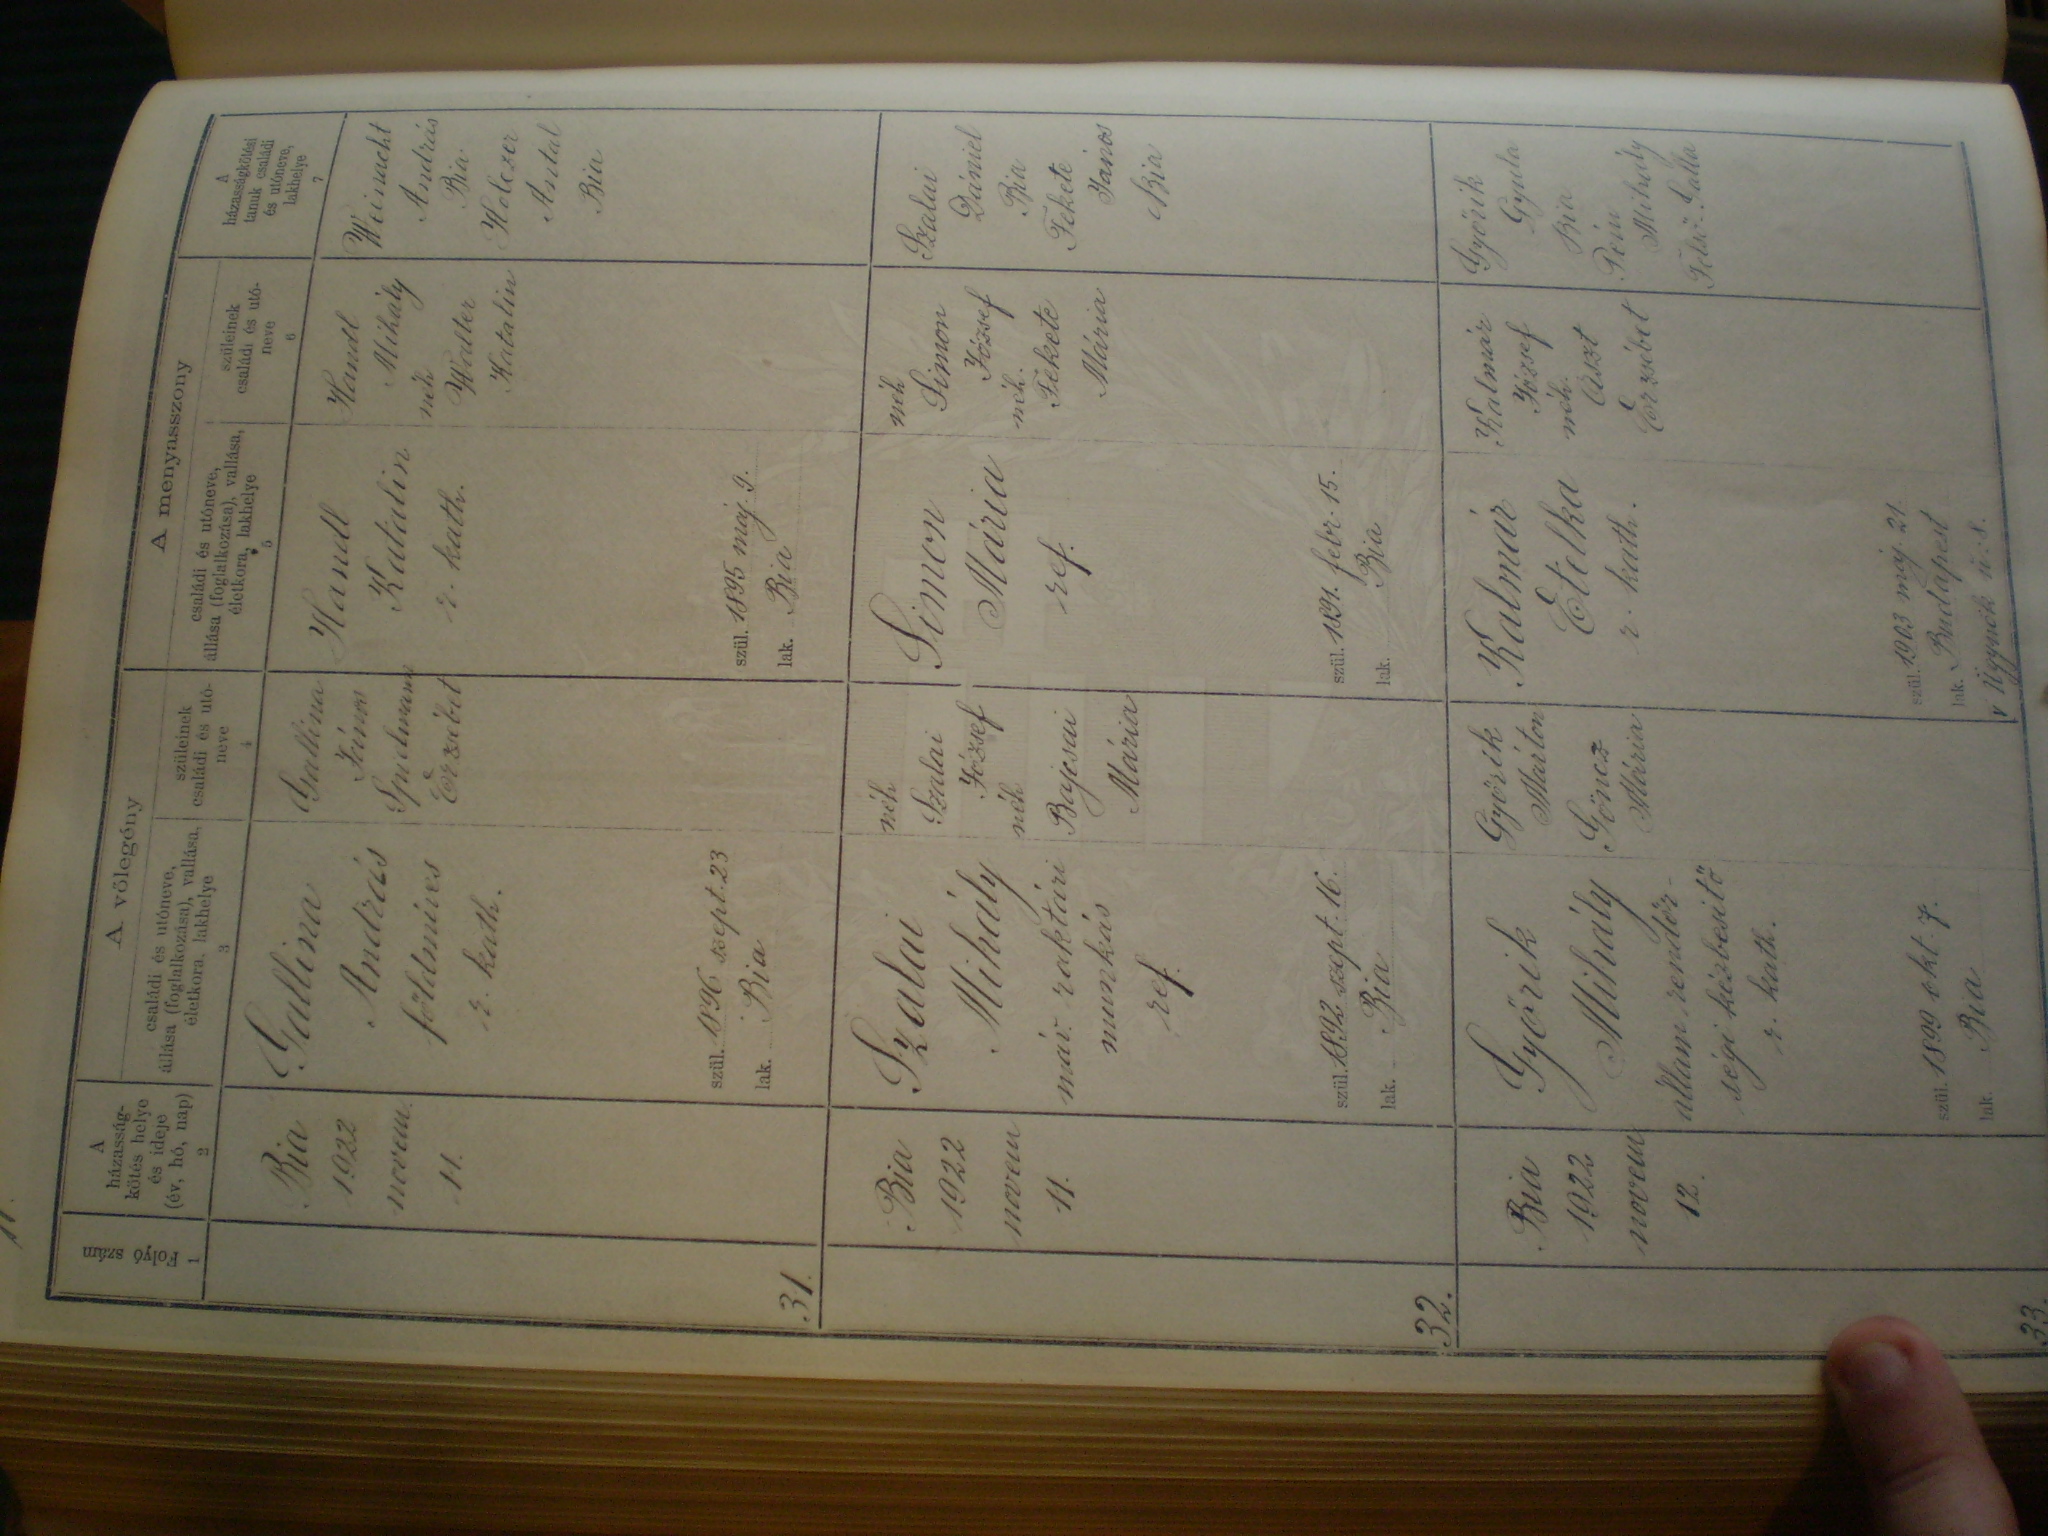 A vőlegény
A menyasszony
1
Folyó szám
2
A
házasság-
kötés helye
és ideje
(év, hó, nap)
3
családi és utóneve,
állása (foglalkozása), vallása,
életkora, lakhelye
4
szüleinek
családi és utó-
neve
5
családi és utóneve,
állása (foglalkozása), vallása,
életkora, lakhelye
6
szüleinek
családi és utó-
neve
7
A
házasságkötési
tanuk családi
és utóneve,
lakhelye
31.
Bia
1922
novem.
11.
Gallina
András
földmíves
r. kath.
szül. 1896 szept. 23
lak. Bia
Gallina
János
Spielmann
Erzsébet
Handl
Katalin
r. kath.
szül. 1895 máj. 9.
lak. Bia
Handl
Mihály
néh
Walter
Katalin
Weinacht
András
Bia
Holczer
Antal
Bia
32.
Bia
1922
novem
11.
Szalai
Mihály
máv. raktári
munkás
ref.
szül. 1892 szept. 16.
lak. Bia
néh
Szalai
József
néh
Bajcsai
Mária
Simon
Mária
ref.
szül. 1891. febr. 15.
lak. Bia
néh
Simon
József
néh.
Fekete
Mária
Szalai
Dániel
Bia
Fekete
János
Bia
33.
Bia
1922
novem
12.
Győrik
Mihály
állam rendőr-
ségi kézbesítő
r. kath.
szül. 1899 okt. 7.
lak. Bia
Győrik
Márton
Göncz
Mária
Kalmár
Etelka
r. kath.
szül. 1903 máj. 21.
lak. Budapest
v Ügynök u. 8.
Kalmár
József
néh.
Aszt
Erzsébet
Győrik
Gyula
Bia
Mihály
Felső-Galla